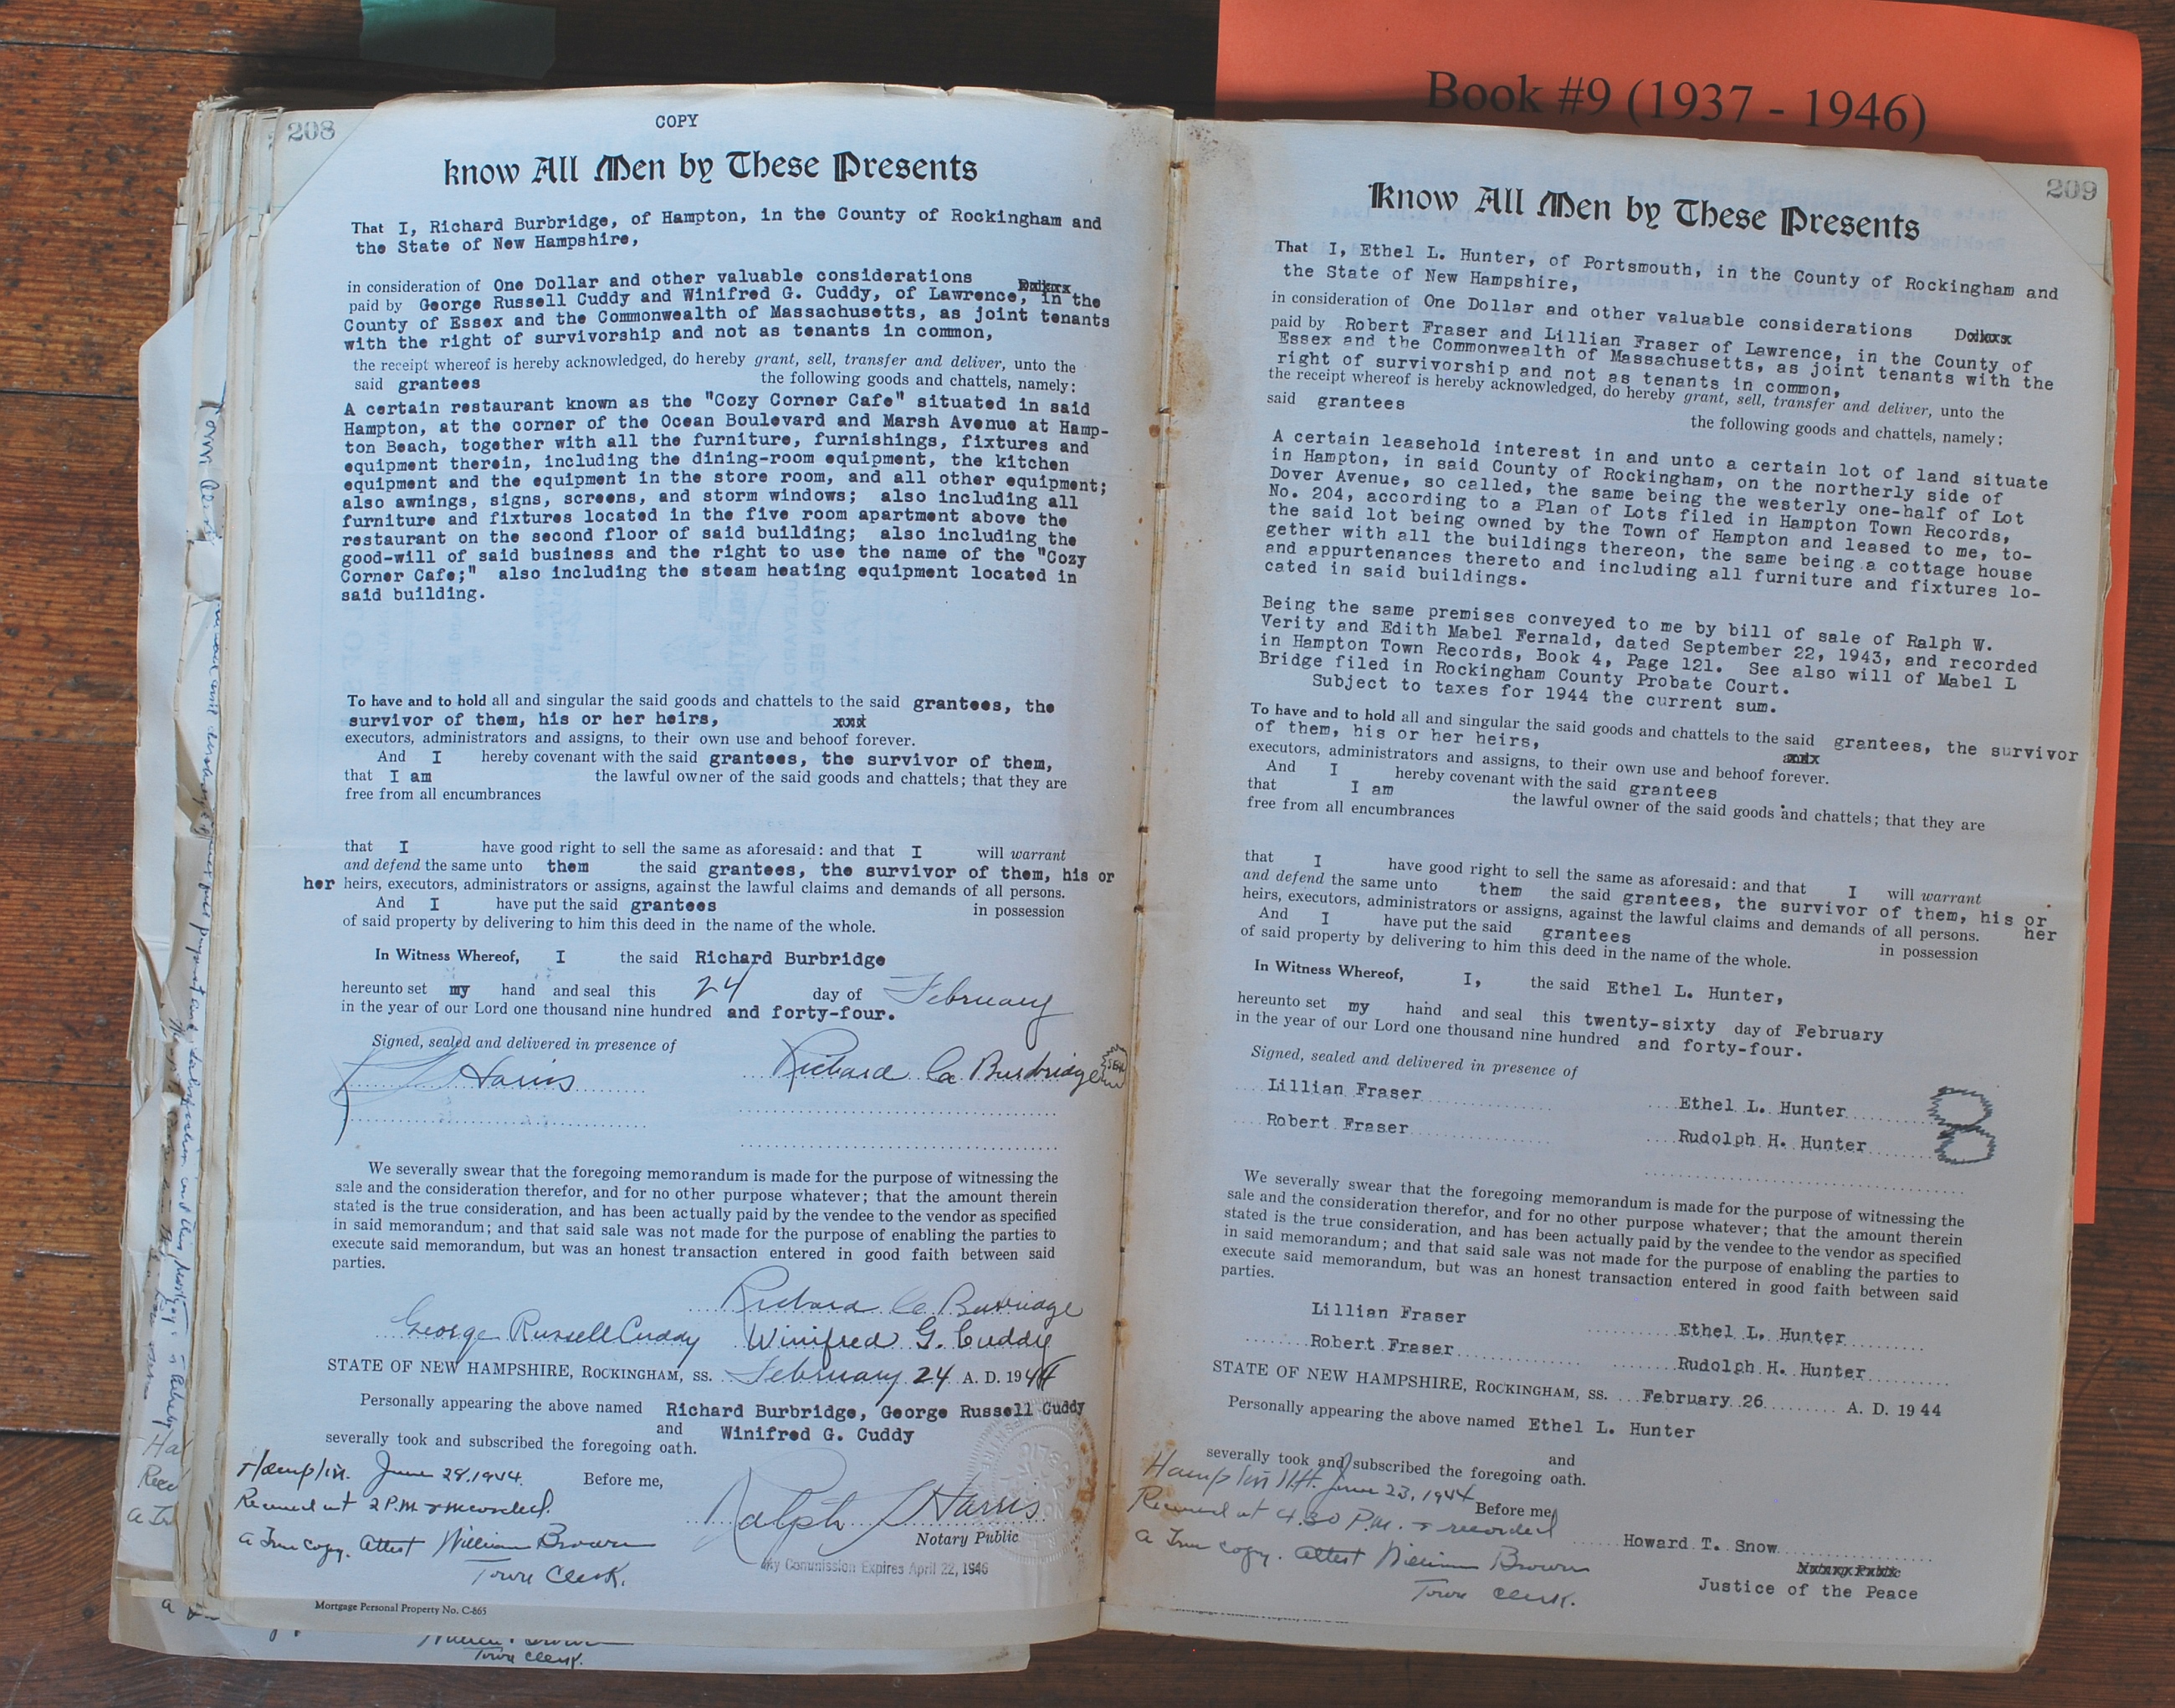 Book #9 (1937 - 1946)
208
COPY
Know All Men by These Presents
That I, Richard Burbridge, of Hampton, in the County of Rockingham and
the State of New Hampshire,
in consideration of One Dollar and other valuable considerations
paid by George Russell Cuddy and Winifred G. Cuddy, of Lawrence, in the
County of Essex and the Commonwealth of Massachusetts, as joint tenants
with the right of survivorship and not as tenants in common,
the receipt whereof is hereby acknowledged, do hereby grant, sell, transfer and deliver, unto the
said grantees the following goods and chattels, namely:
A certain restaurant known as the "Cozy Corner Cafe" situated in said
Hampton, at the corner of the Ocean Boulevard and Marsh Avenue at Hamp-
ton Beach, together with all the furniture, furnishings, fixtures and
equipment therein, including the dining-room equipment, the kitchen
equipment and the equipment in the store room, and all other equipment;
also awnings, signs, screens, and storm windows; also including all
furniture and fixtures located in the five room apartment above the
restaurant on the second floor of said building; also including the
good-will of said business and the right to use the name of the "Cozy
Corner Cafe;" also including the steam heating equipment located in
said building.
To have and to hold all and singular the said goods and chattels to the said grantees, the
survivor of them, his or her heirs,
executors, administrators and assigns, to their own use and behoof forever.
And I hereby covenant with the said grantees, the survivor of them,
that I am the lawful owner of the said goods and chattels; that they are
free from all encumbrances
that I have good right to sell the same as aforesaid: and that I will warrant
and defend the same unto them the said grantees, the survivor of them, his or
her heirs, executors, administrators or assigns, against the lawful claims and demands of all persons.
And I have put the said grantees in possession
of said property by delivering to him this deed in the name of the whole.
In Witness Whereof, I the said Richard Burbridge
hereunto set my hand and seal this 24 day of February
in the year of our Lord one thousand nine hundred and forty-four.
Signed, sealed and delivered in presence of
Harris Richard Burbridge SEAL
We severally swear that the foregoing memorandum is made for the purpose of witnessing the
sale and the consideration therefor, and for no other purpose whatever; that the amount therein
stated is the true consideration, and has been actually paid by the vendee to the vendor as specified
in said memorandum; and that said sale was not made for the purpose of enabling the parties to
execute said memorandum, but was an honest transaction entered in good faith between said
parties.
Richard Burbridge
George Russell Cuddy Winifred G. Cuddy
STATE OF NEW HAMPSHIRE, ROCKINGHAM, SS. February 24 A. D. 1944
Personally appearing the above named Richard Burbridge, George Russell Cuddy
and Winifred G. Cuddy
severally took and subscribed the foregoing oath.
Hampton. June 28, 1944. Before me,
Received at 2 P.M. & recorded.
Ralph Harris
A True copy. Attest William Brown
Notary Public
Town Clerk.
My Commission Expires April 22, 1946
Mortgage Personal Property No. C-865
Town Clerk.
209
Know All Men by These Presents
That I, Ethel L. Hunter, of Portsmouth, in the County of Rockingham and
the State of New Hampshire,
in consideration of One Dollar and other valuable considerations
paid by Robert Fraser and Lillian Fraser of Lawrence, in the County of
Essex and the Commonwealth of Massachusetts, as joint tenants with the
right of survivorship and not as tenants in common,
the receipt whereof is hereby acknowledged, do hereby grant, sell, transfer and deliver, unto the
said grantees
the following goods and chattels, namely:
A certain leasehold interest in and unto a certain lot of land situate
in Hampton, in said County of Rockingham, on the northerly side of
Dover Avenue, so called, the same being the westerly one-half of Lot
No. 204, according to a Plan of Lots filed in Hampton Town Records,
the said lot being owned by the Town of Hampton and leased to me, to-
gether with all the buildings thereon, the same being a cottage house
and appurtenances thereto and including all furniture and fixtures lo-
cated in said buildings.
Being the same premises conveyed to me by bill of sale of Ralph W.
Verity and Edith Mabel Fernald, dated September 22, 1943, and recorded
in Hampton Town Records, Book 4, Page 121. See also will of Mabel L
Bridge filed in Rockingham County Probate Court.
Subject to taxes for 1944 the current sum.
To have and to hold all and singular the said goods and chattels to the said grantees, the survivor
of them, his or her heirs,
executors, administrators and assigns, to their own use and behoof forever.
And I hereby covenant with the said grantees
that I am the lawful owner of the said goods and chattels; that they are
free from all encumbrances
that I have good right to sell the same as aforesaid: and that I will warrant
and defend the same unto them the said grantees, the survivor of them, his or
her
heirs, executors, administrators or assigns, against the lawful claims and demands of all persons.
And I have put the said grantees in possession
of said property by delivering to him this deed in the name of the whole.
In Witness Whereof, I, the said Ethel L. Hunter,
hereunto set my hand and seal this twenty-sixty day of February
in the year of our Lord one thousand nine hundred and forty-four.
Signed, sealed and delivered in presence of
Lillian Fraser Ethel L. Hunter
Robert Fraser Rudolph H. Hunter
We severally swear that the foregoing memorandum is made for the purpose of witnessing the
sale and the consideration therefor, and for no other purpose whatever; that the amount therein
stated is the true consideration, and has been actually paid by the vendee to the vendor as specified
in said memorandum; and that said sale was not made for the purpose of enabling the parties to
execute said memorandum, but was an honest transaction entered in good faith between said
parties.
Lillian Fraser Ethel L. Hunter
Robert Fraser Rudolph H. Hunter
STATE OF NEW HAMPSHIRE, ROCKINGHAM, SS. February 26 A. D. 1944
Personally appearing the above named Ethel L. Hunter
and
severally took and subscribed the foregoing oath.
Hampton N.H. June 23, 1944 Before me,
Received at 4.30 P.M. & recorded
Howard T. Snow
A True copy. Attest William Brown
Notary Public
Town Clerk.
Justice of the Peace